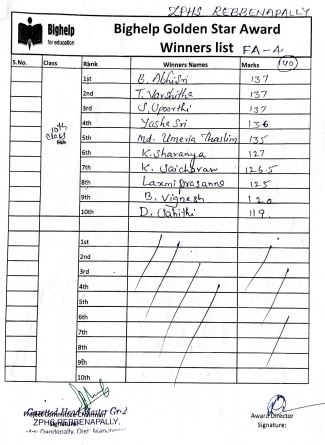 ZPHS REBBENAPALLY
Bighelp
for education
Bighelp Golden Star Award
Winners list FA-4
S.No. Class Rank Winners Names Marks (140)
10th class
1st B. AbhiSri 137
2nd T. Varshitha 137
3rd S. Upoorthi 137
4th Yasha Sri 136
5th Md. Umeria Thaslim 135
6th K. Sharanya 127
7th K. Saicharan 126.5
8th Laxmi prasanna 125
9th B. Vignesh 120
10th D. Sahithi 119
1st
2nd
3rd
4th
5th
6th
7th
8th
9th
10th
Project Committee Chairman
Signature:
Gazetted Head Master Gr-I
ZPHS, REBBENAPALLY,
Dandepally, Dist: Mancherial
Award Director
Signature: